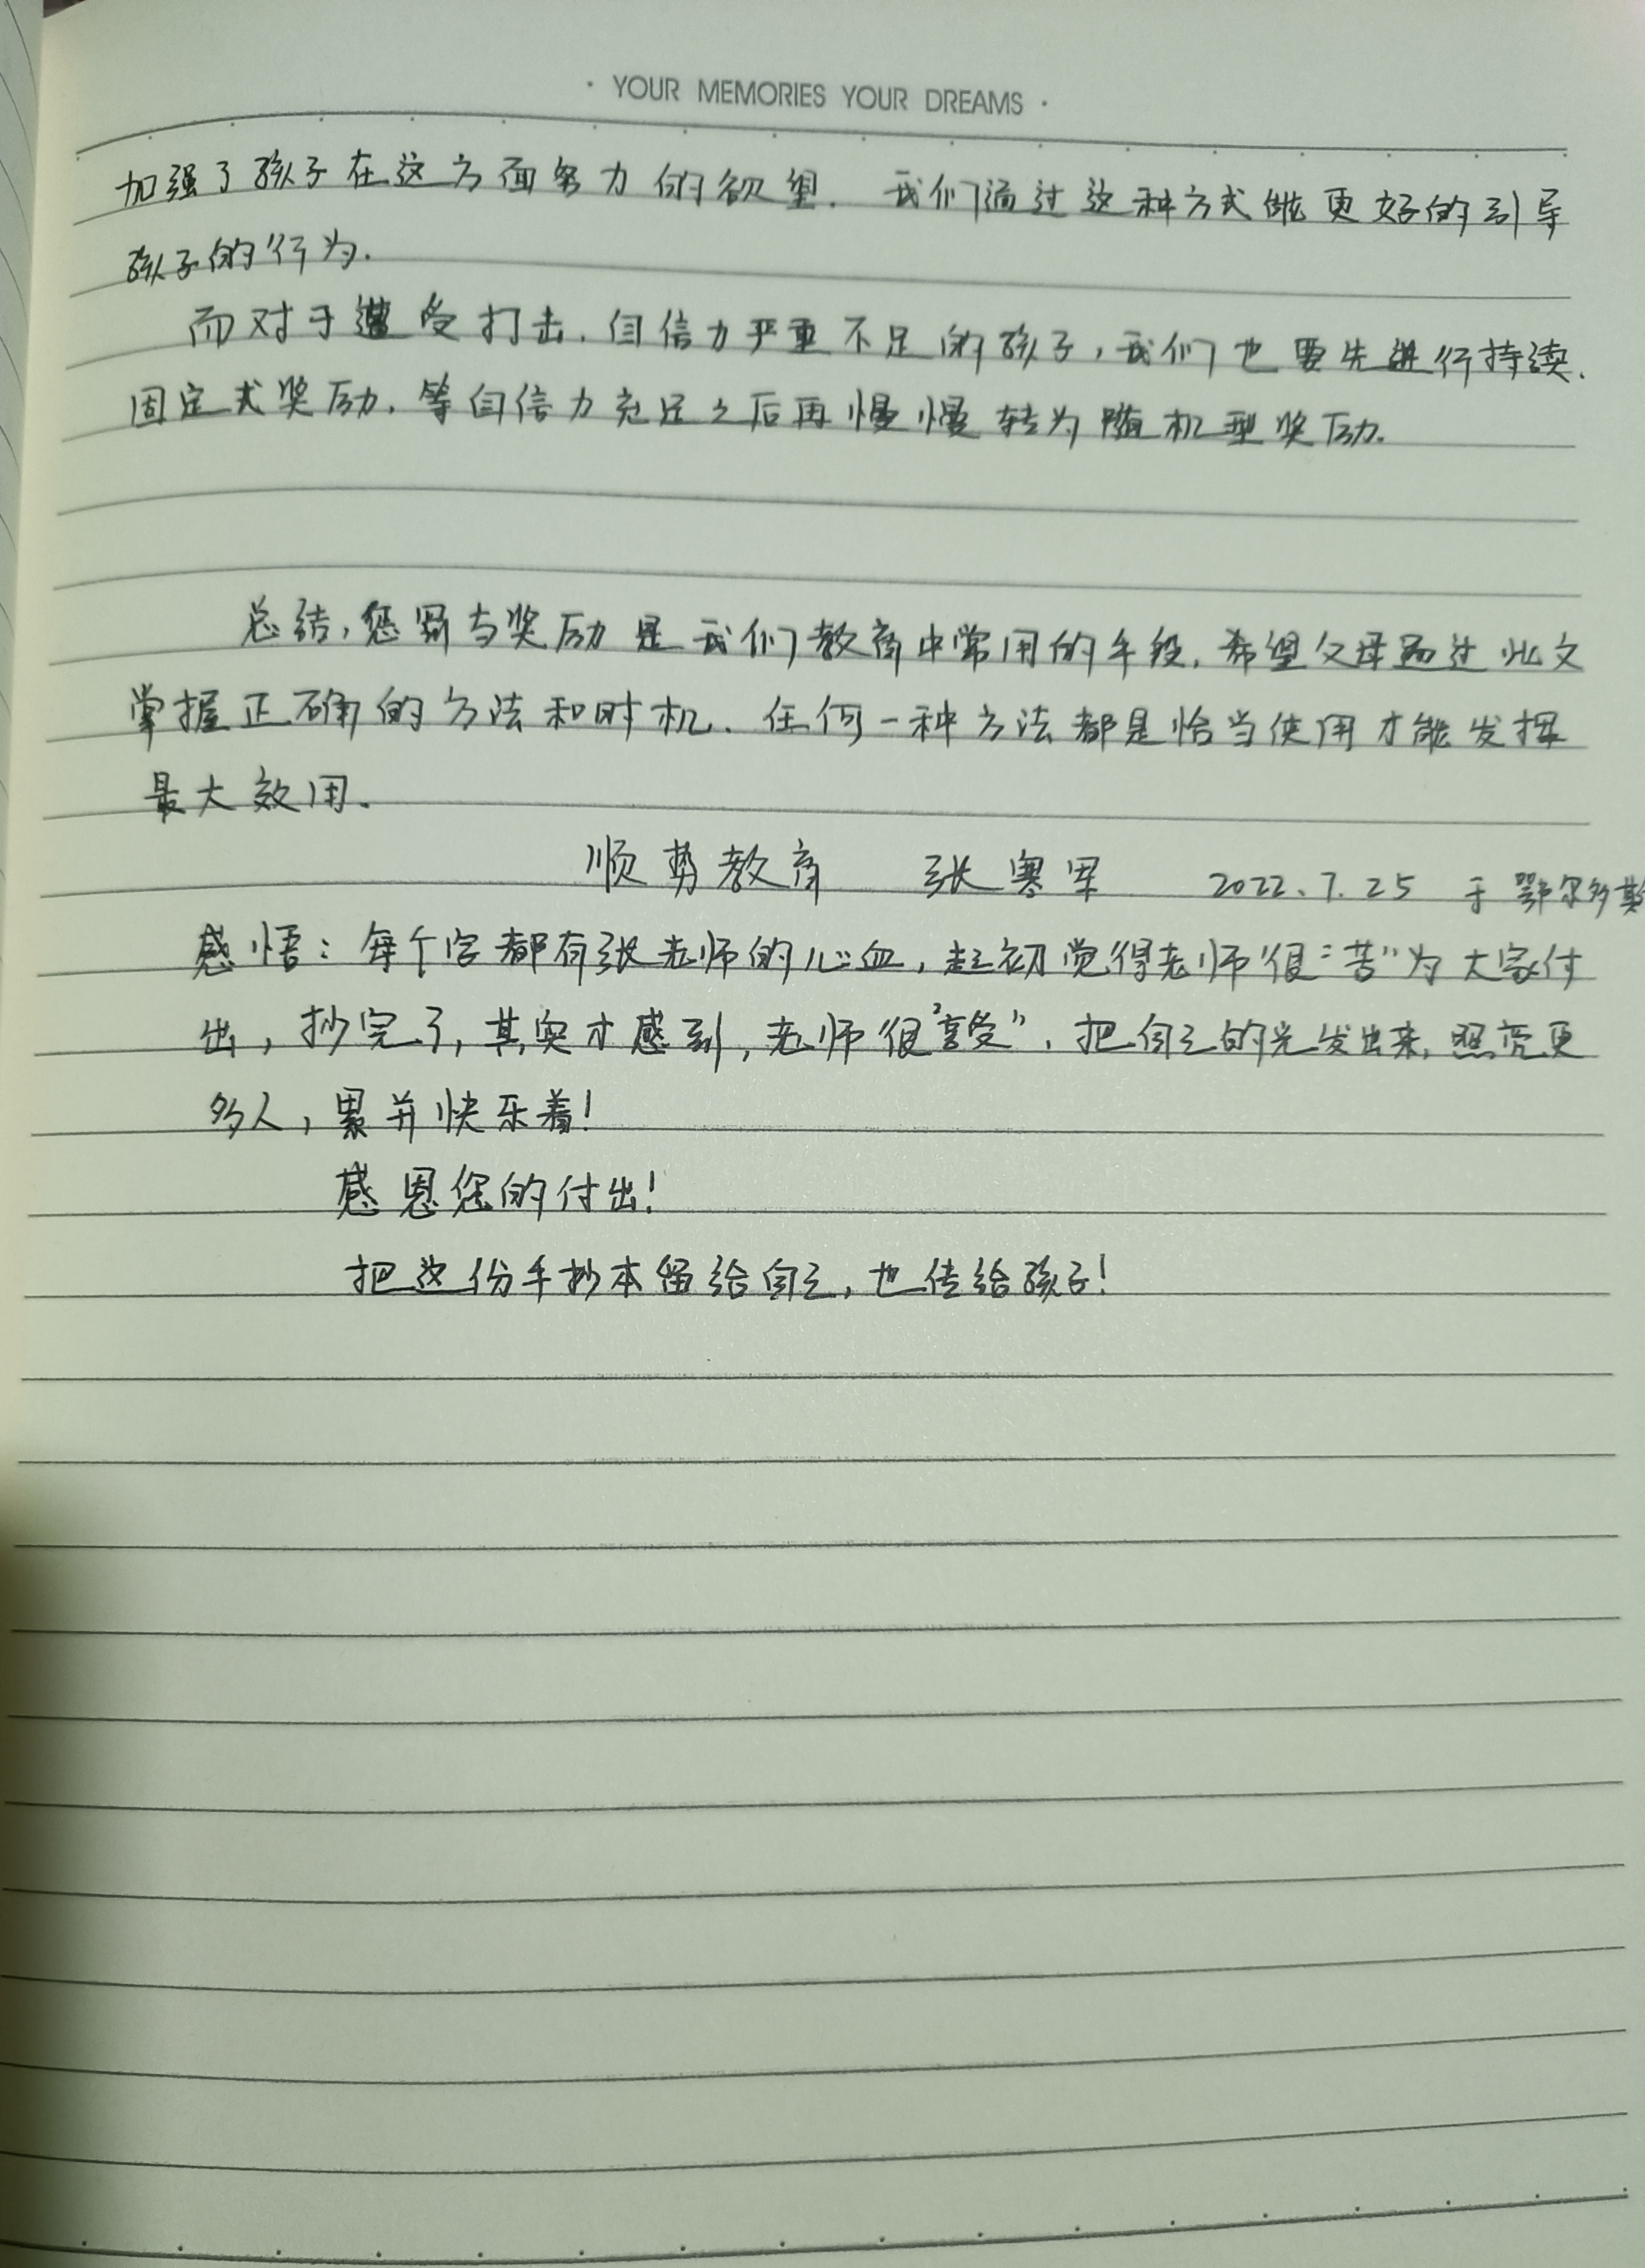 · YOUR MEMORIES YOUR DREAMS ·
加强了孩子在这方面努力的欲望. 我们通过这种方式能更好的引导
孩子的行为.
而对于遭受打击.自信力严重不足的孩子,我们也要先进行持续.
固定式奖励.等自信力充足之后再慢慢转为随机型奖励.
总结,惩罚与奖励是我们教育中常用的手段.希望父母通过此文
掌握正确的方法和时机.任何一种方法都是恰当使用才能发挥
最大效用。
顺势教育 张寒军 2022.7.25 于鄂尔多斯
感悟:每个字都有张老师的心血,起初觉得老师很“苦”为大家付
出,抄完了,其实才感到,老师很“享受”.把自己的光发出来,照亮更
多人,累并快乐着!
感恩您的付出!
把这份手抄本留给自己,也传给孩子!